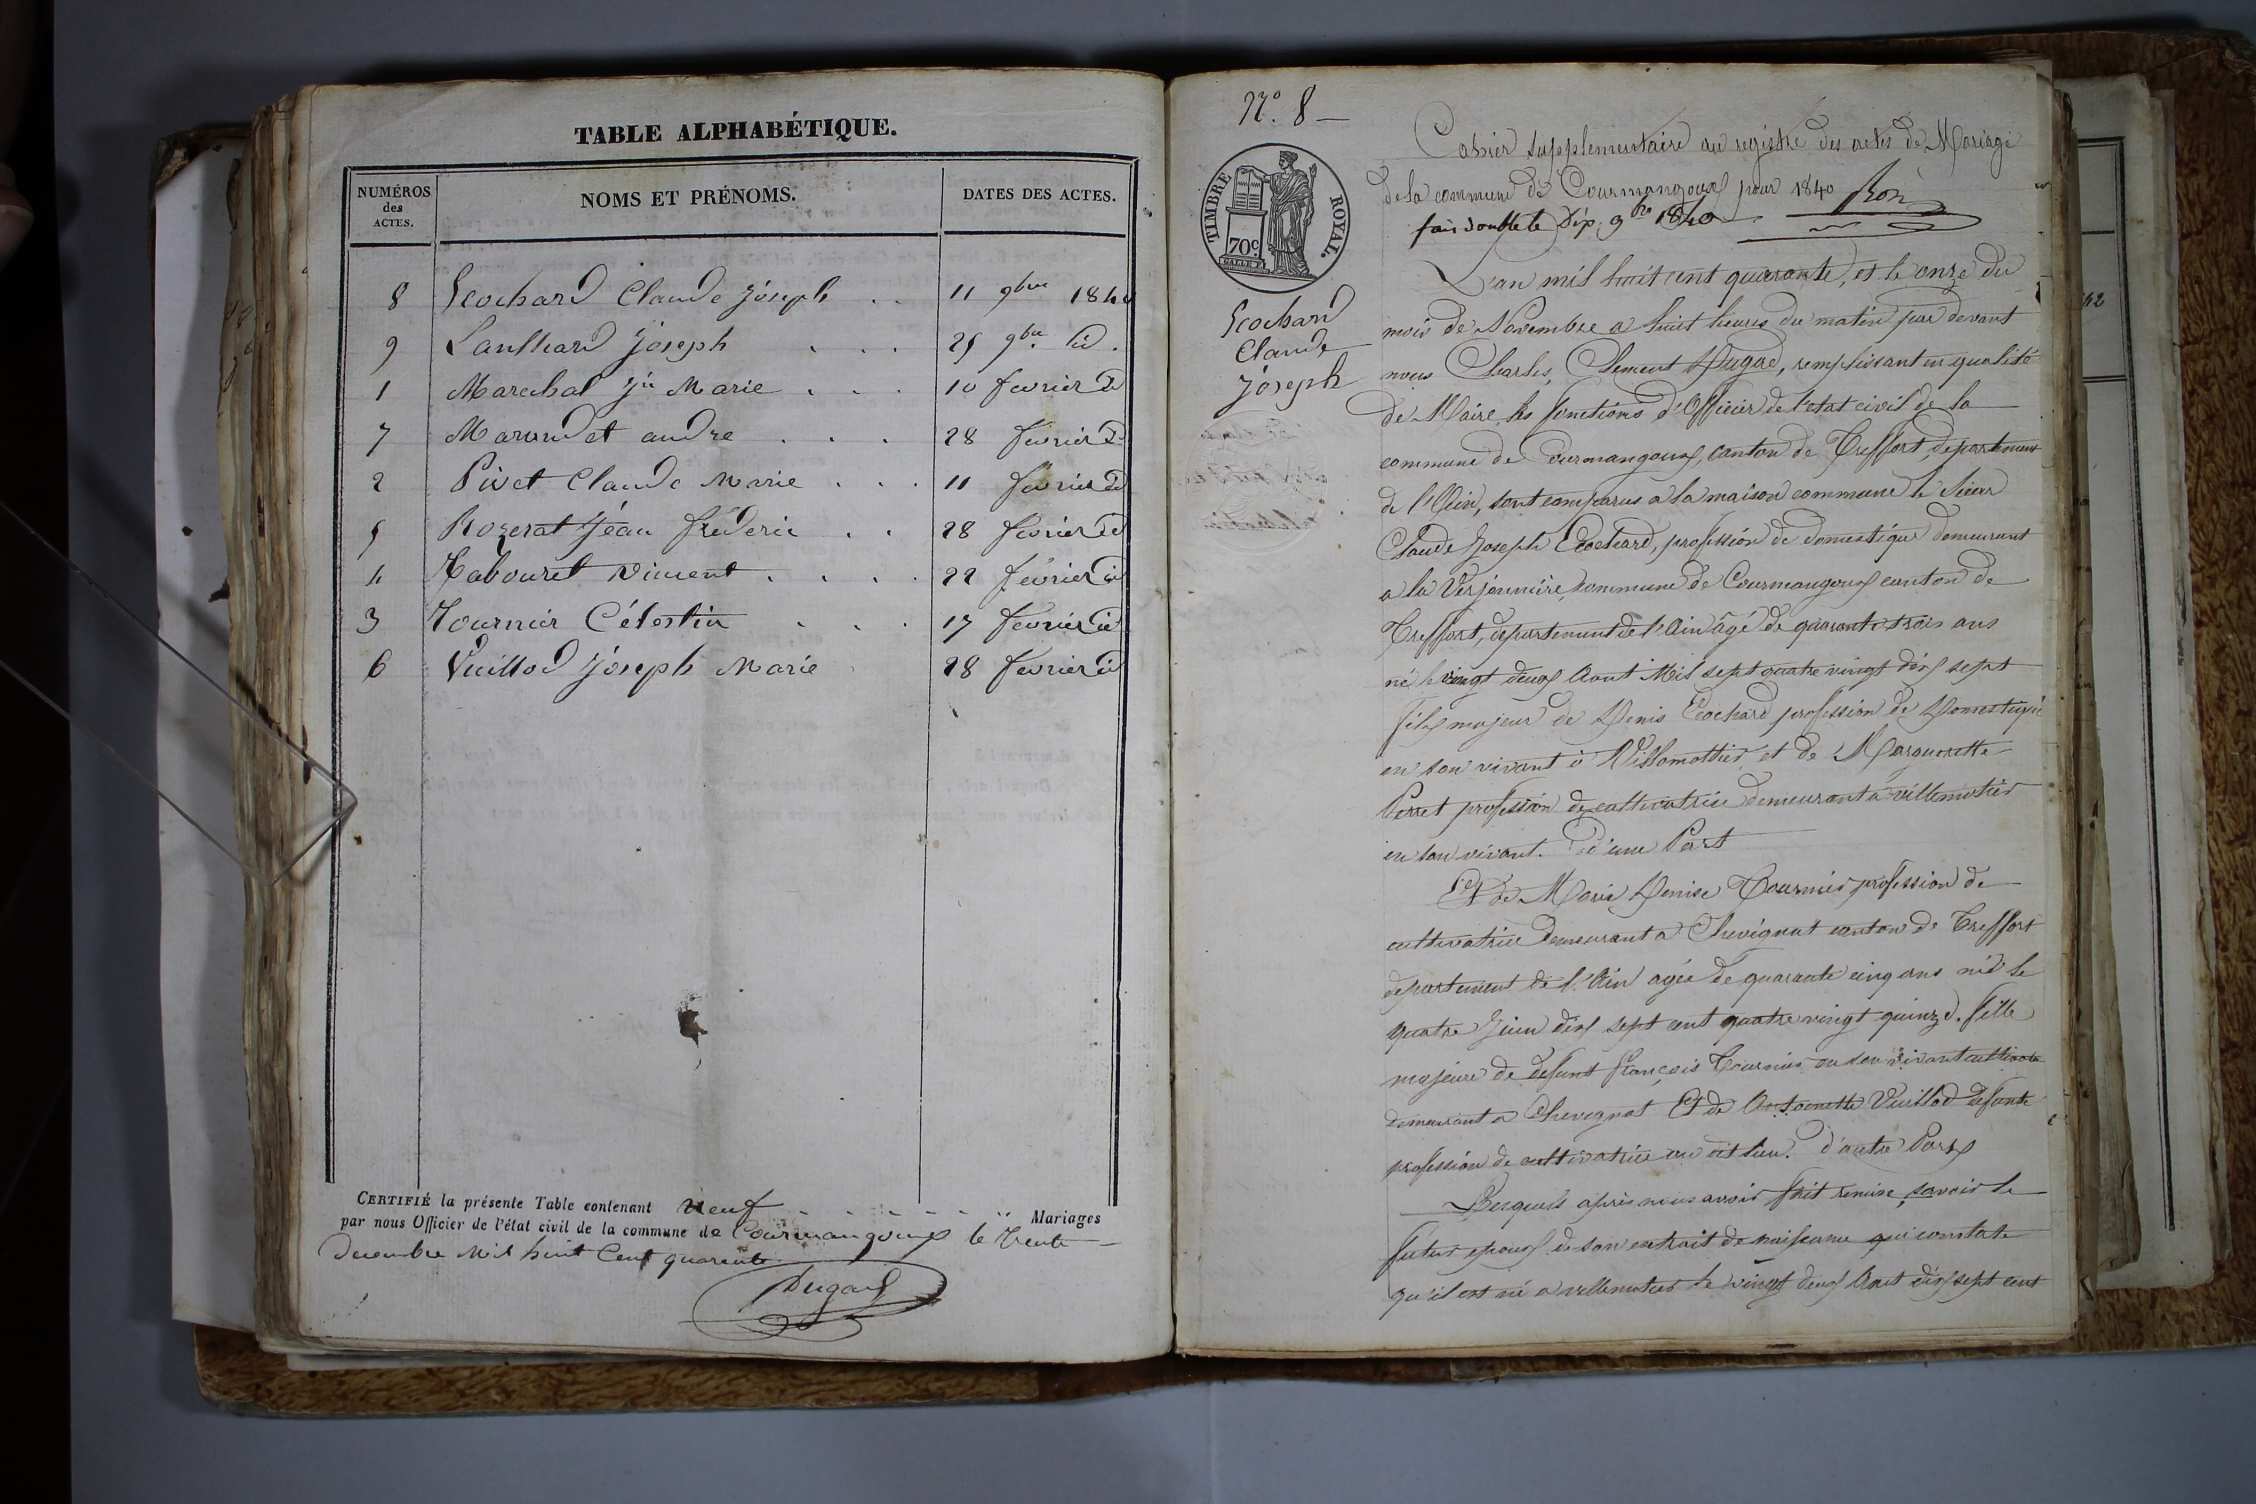 TABLE ALPHABÉTIQUE.
NUMÉROS
des
ACTES.
NOMS ET PRÉNOMS.
DATES DES ACTES.
8 Ecochard Claude Joseph . . 11 9bre 1840
9 Laulhard Joseph . . . 25 9bre id.
1 Marechal Jn Marie . . . 10 fevrier id
7 Marondet andre . . . 28 fevrier id
2 Pivet Claude Marie . . . 11 fevrier id
5 Rozerat Jean frederic . . 28 fevrier id
4 Tabouret vincent . . . . 22 fevrier id
3 Tournier Célestin . . . 17 fevrier id
6 Vuillod Joseph Marie 28 fevrier id
CERTIFIÉ la présente Table contenant neuf . . . . . . Mariages
par nous Officier de l'état civil de la commune de Courmangoux le trente
decembre mil huit Cent quarante
Dugad
No. 8
TIMBRE ROYAL.
70c.
Ecochard
Claude
Joseph
Cahier supplementaire au registre des actes de Mariage
de la commune de Courmangoux pour 1840
9bre 1840
L'an mil huit cent quarante, et le onze du
mois de Novembre a huit heures du matin par devant
nous Charles, Clement Dugad, remplissant en qualité
de Maire les fonctions d'Officier de l'etat civil de la
commune de Courmangoux, canton de Treffort, departement
de l'Ain, sont comparus a la maison commune le Sieur
Claude Joseph Ecochard, profession de domestique demeurant
a la Verjonnière, commune de Courmangoux canton de
Treffort, departement de l'Ain âgé de quarante trois ans
né le vingt deux Aout Mil sept quatre vingt dix sept
fils majeur de Denis Ecochard profession de Domestique
en son vivant à Villemottier et de Marguerette
Perret profession de cultivatrice demeurant à villemotier
en son vivant. D'une Part
Et de Marie Denise Tournier profession de
cultivatrice demeurant a Chevignat canton de Treffort
departement de l'Ain agée de quarante cinq ans née le
quatre Juin dix sept cent quatre vingt quinze. fille
majeure de defunt françois Tournier en son vivant
demeurant a Chevignat Et de Antoinette Vuillod defunte
profession de cultivatrice au dit lieu. d'autre Part
Lesquels après nous avoir fait remise, savoir le
futur epoux de son extrait de naissance qui constate
qu'il est né a villemotier le vingt deux Aout dix sept cent